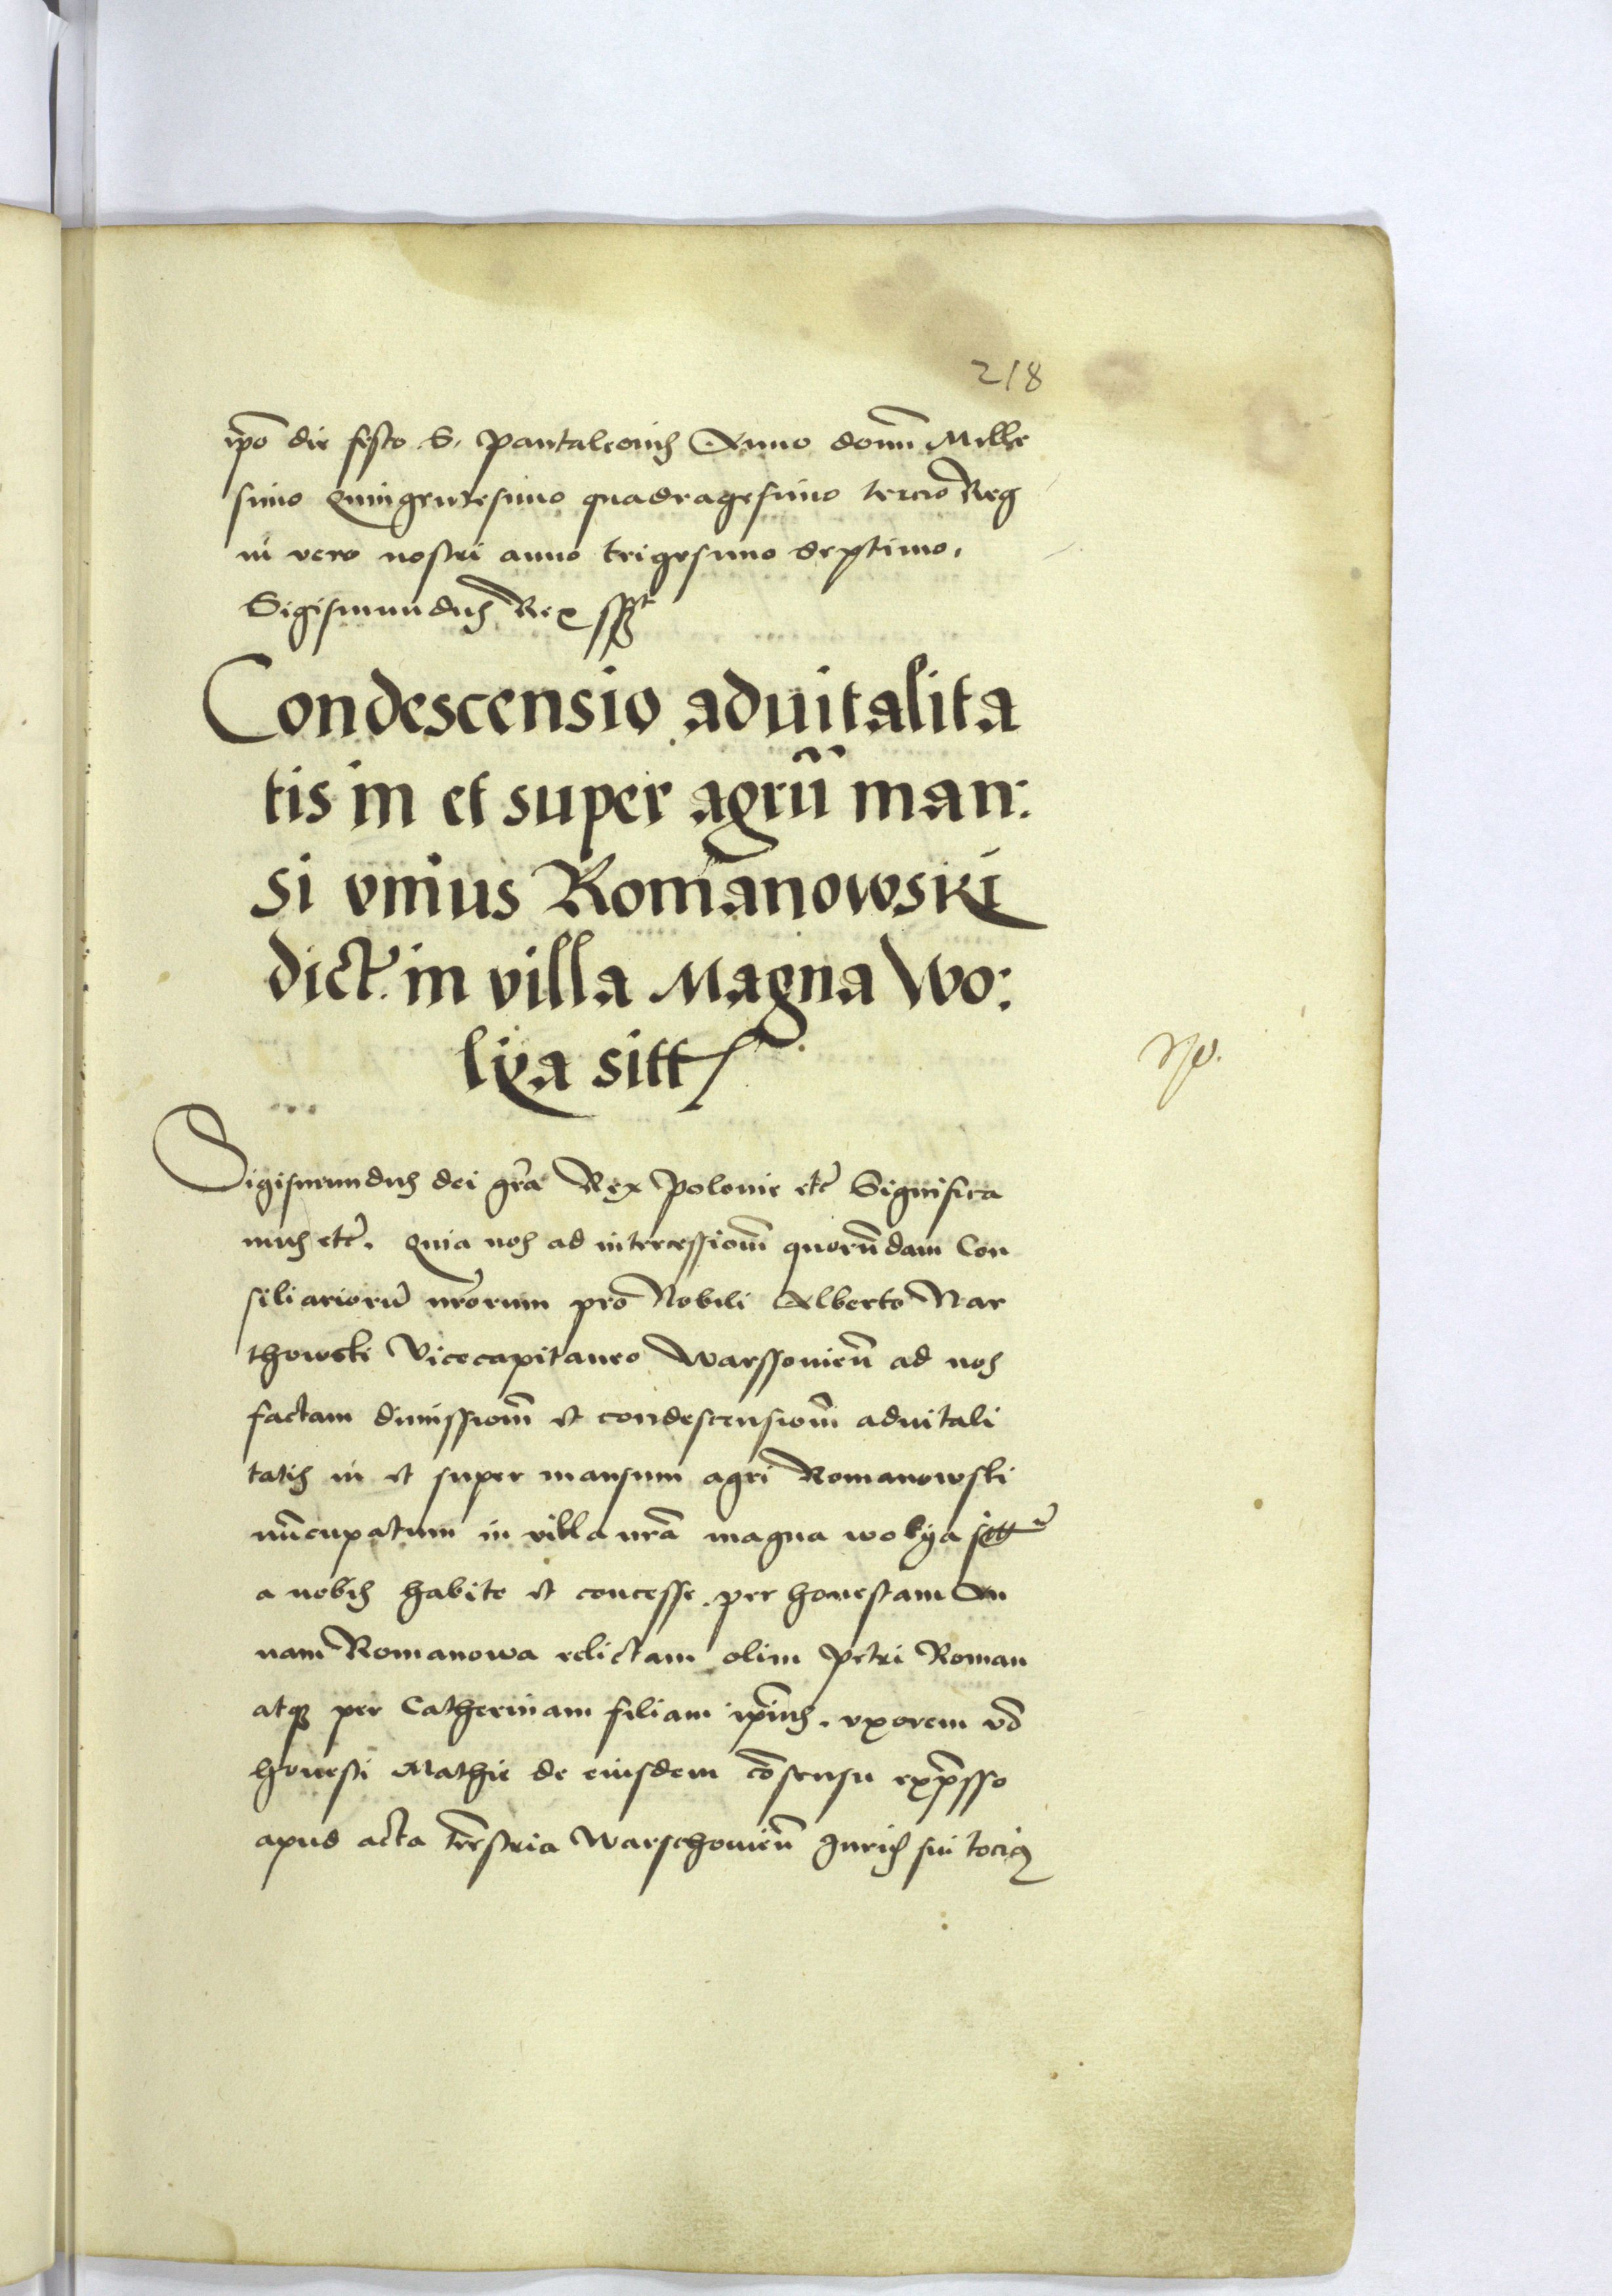 218
ip̄o die festo S. Pantaleonis Anno domī Mille
simo Quingentesimo quadragesimo tercio Reg
ni vero nostri anno trigesimo septimo.
Sigismundus Rex sṣt
Condescensio aduitalita
tis in et super agrū man:
si vnius Romanowski
dict. in villa Magna Wo:
lya sitt
Sigismundus dei grā Rex Polonie etc̄ Significa
mus etc̄. Quia nos ad intercessionē quorūdam Con
siliariorū nr̄orum pro Nobili Alberto Nar
thowski Vicecapitaneo Warssouien̄ ad nos
factam dimissionē et condescensionē aduitali
tatis in et super mansum agri Romanowski
nūcupatum in villa nrā magna wolya sitt
a nobis habite et concesse per honestam An
nam Romanowa relictam olim Petri Roman
atq̨ per Catherinam filiam ip̄ius. vxorem vō
honesti Mathie de eiusdem cōsensu exp̄sso
apud acta trēstria Warschouien̄ Juris sui tociꝰ